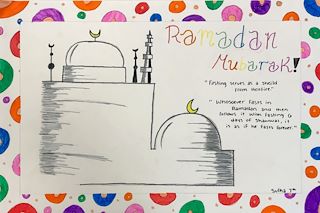 Ramadan
Mubarak!
"Fasting serves as a shield
from Hellfire"
"Whosoever fasts in
Ramadan and then
follows it with fasting 6
days of Shawwal, it
is as if he fasts forever."